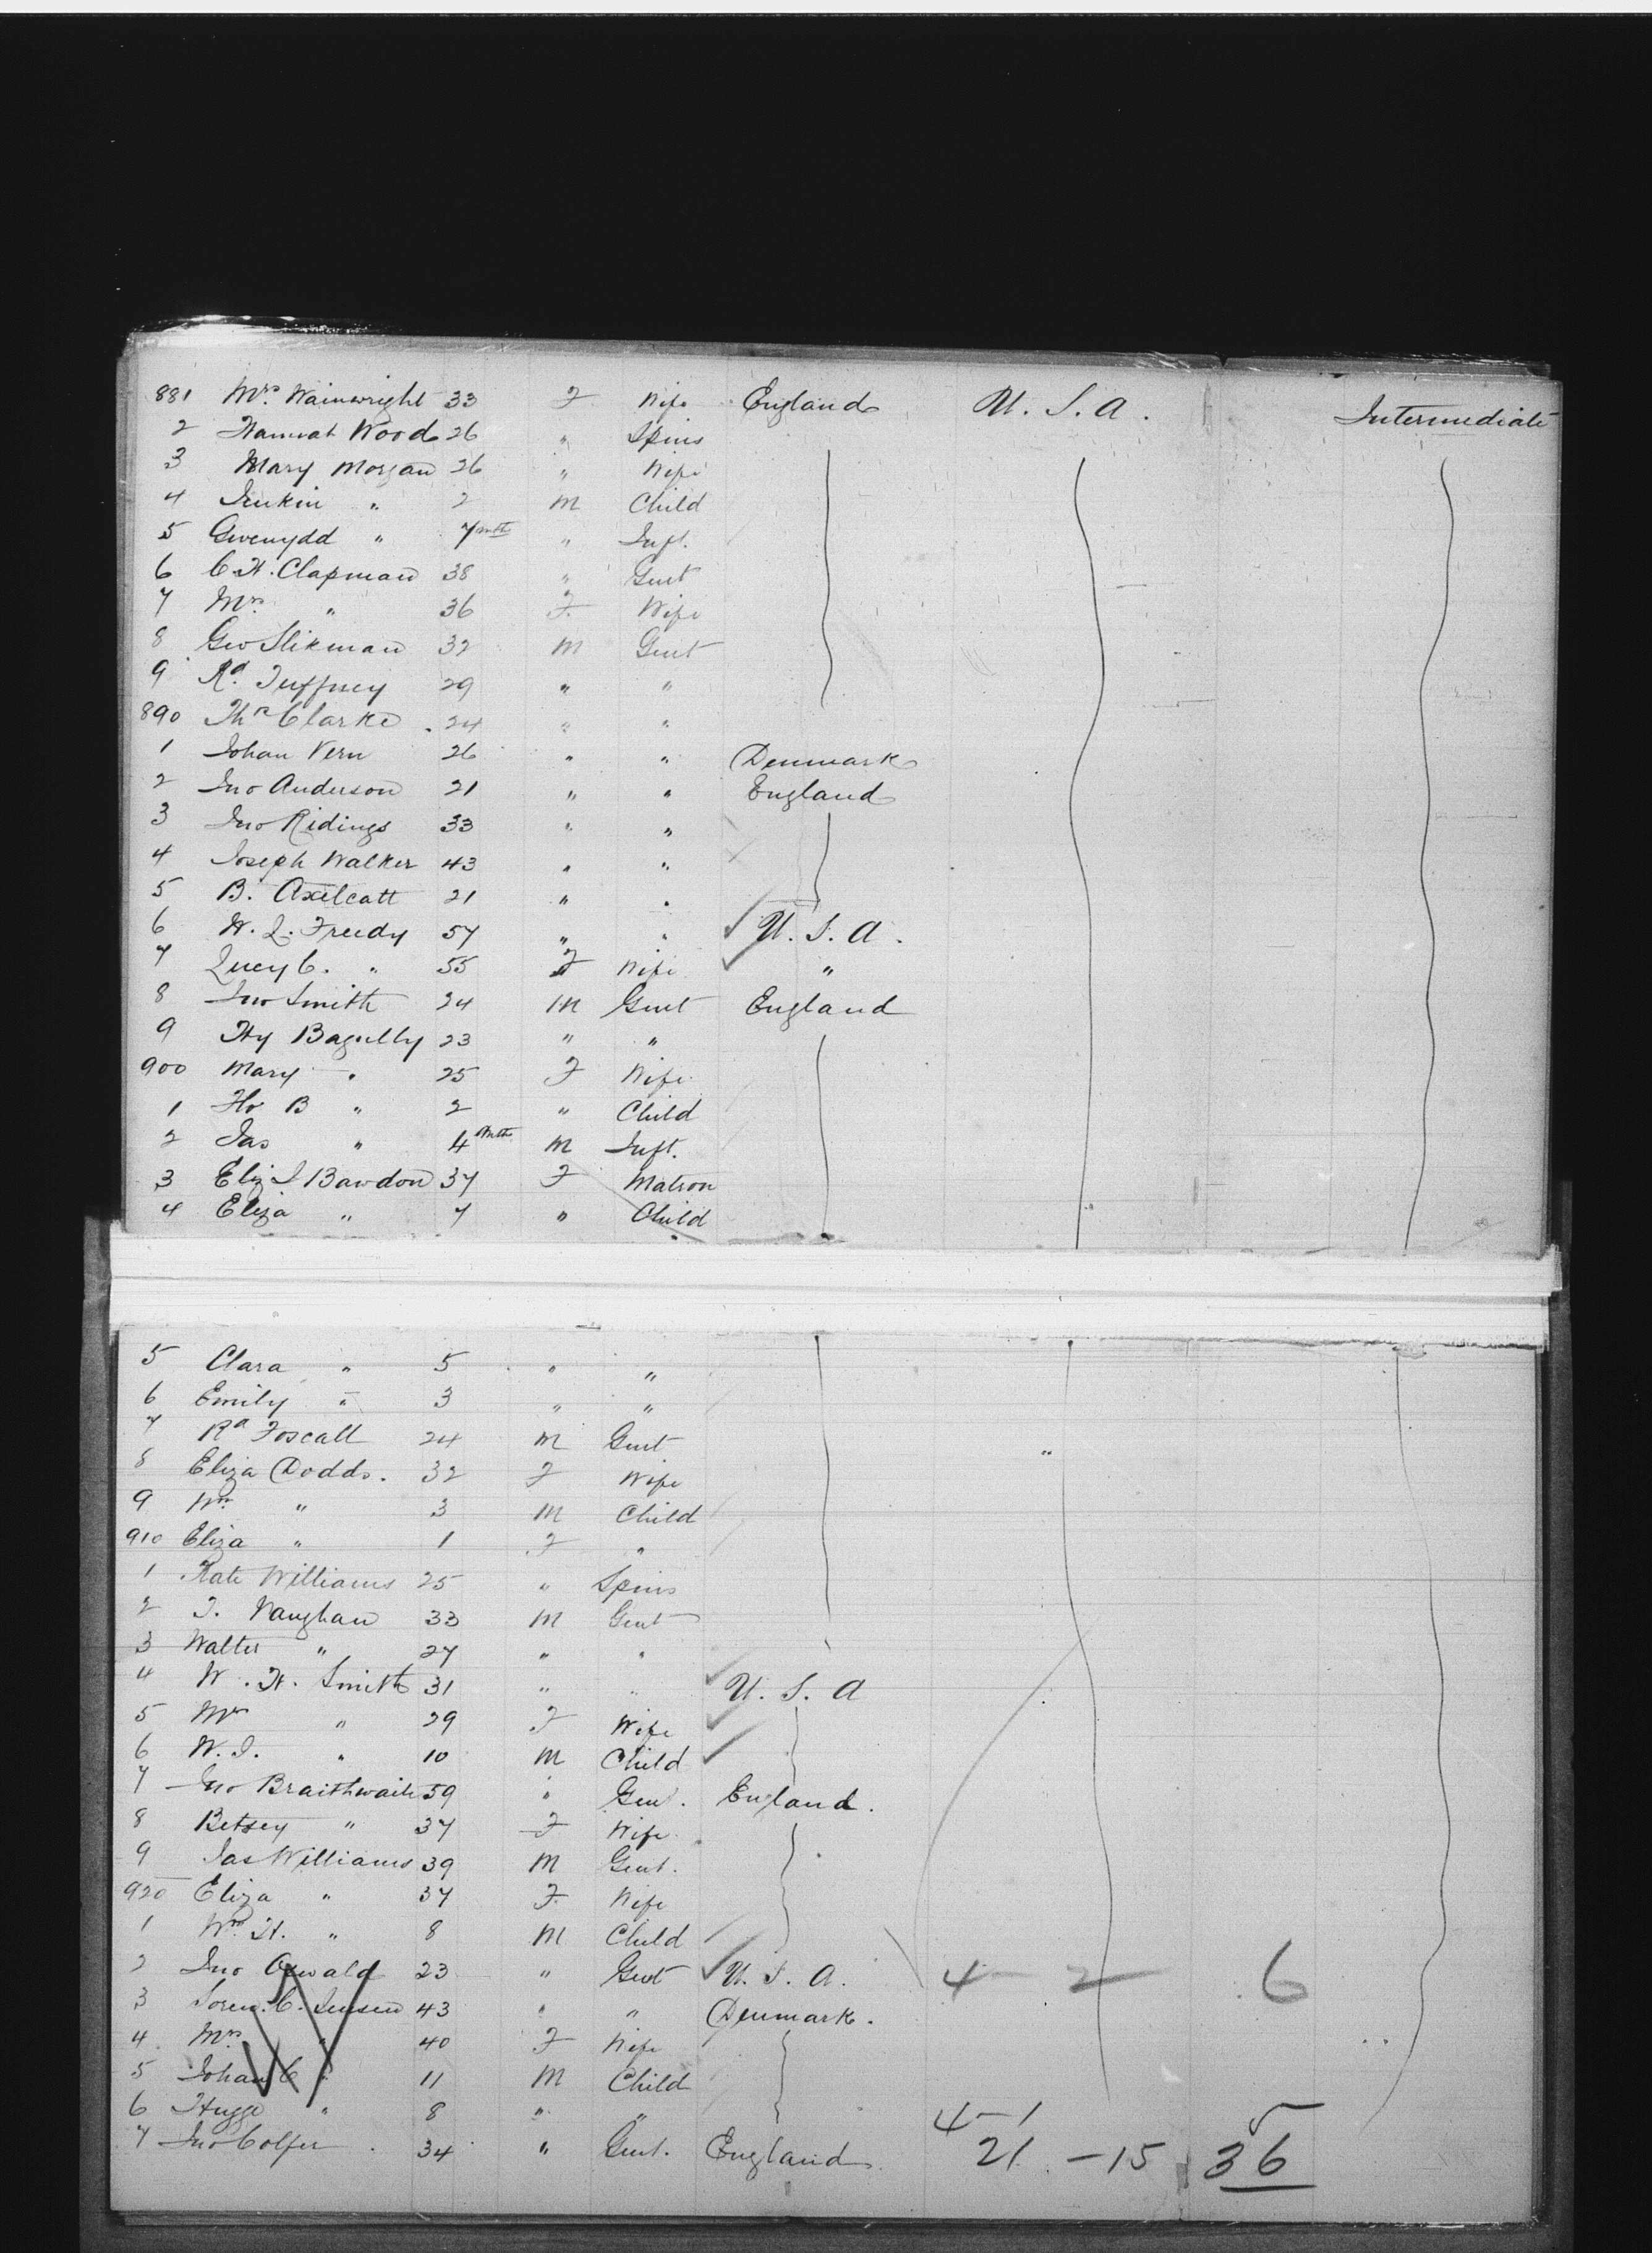 881 Mrs. Wainwright 33 F Wife England U. S. A. Intermediate
2 Hannah Wood 26 " Spins
3 Mary Morgan 26 " Wife
4 Jenkin " 2 M Child
5 Gwenydd " 7 mth " Inft.
6 C. H. Clapman 38 " Gent
7 Mrs. " 36 F. Wife
8 Geo Slikman 32 M Gent
9 Rd. Tuffney 29 " "
890 Ths Clarke 24 " "
1 Johan Vern 26 " " Denmark
2 Jno Anderson 21 " " England
3 Jno Ridings 33 " "
4 Joseph Walker 43 " "
5 B. Axelcatt 21 " "
6 W. L. Freedy 57 " " U. S. A.
7 Lucy C. " 55 F Wife "
8 Jno Smith 24 M Gent England
9 Hy Bagully 23 " "
900 Mary " 25 F Wife
1 B " 2 " Child
2 Jas " 4 mth M Inft.
3 Eliz J Bawdon 37 F Matron
4 Eliza " 7 " Child
5 Clara " 5 " "
6 Emily " 3 " "
7 Rd Foscall 24 M Gent "
8 Eliza Dodds. 32 F Wife
9 Wm " 3 M Child
910 Eliza " 1 F "
1 Kate Williams 25 " Spins
2 T. Vaughan 33 M Gent
3 Walter " 27 " "
4 W. H. Smith 31 " " U. S. A
5 Mrs " 29 F Wife
6 W. J. " 10 M Child
7 Jno Braithwaite 59 " Gen. England.
8 Betsey " 37 F Wife
9 Jas Williams 39 M Gent.
920 Eliza " 37 F. Wife
1 Wm. H. " 8 M Child
2 Jno Oswald 23 " Gent U. S. A. 4 - 2 6
3 Soren. C. Jensen 43 " " Denmark.
4. Mrs. " 40 F Wife
5 Johan C " 11 M Child
6 Hugge " 8 " " 4 - 1 5
7 Jno Colfer 34 " Gent. England 21 - 15 36